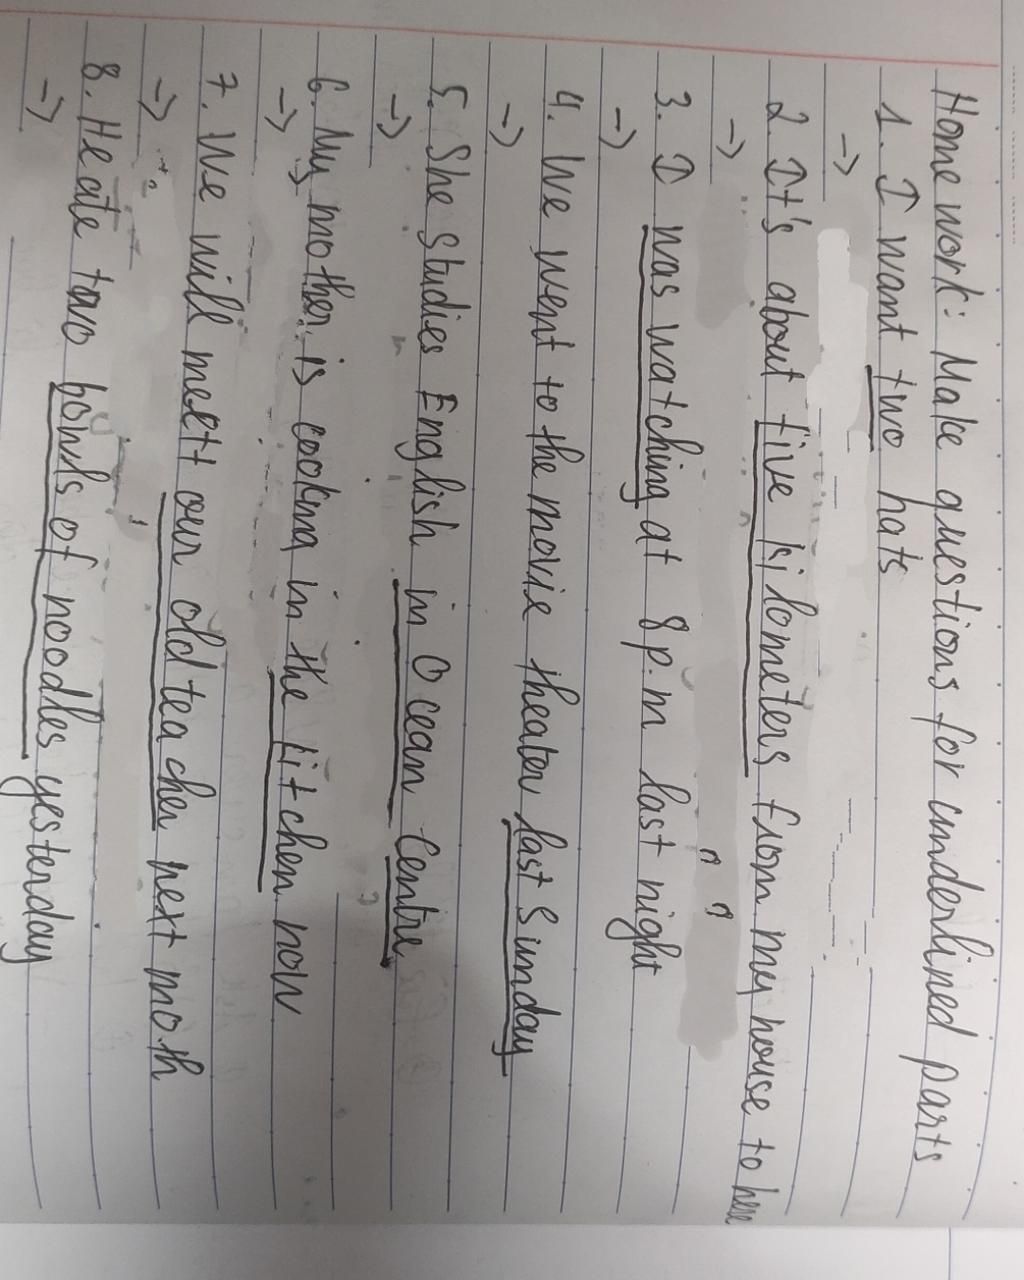 Homework: Make questions for underlined parts
1. I want two hats
->
2. It's about five kilometers from my house to here
->
3. I was watching at 8 p.m last night
->
4. We went to the movie theater last Sunday
->
5. She studies English in Ocean Centre
->
6. My mother is cooking in the kitchen now
->
7. We will meet our old teacher next moth
->
8. He ate two bowls of noodles yesterday
->